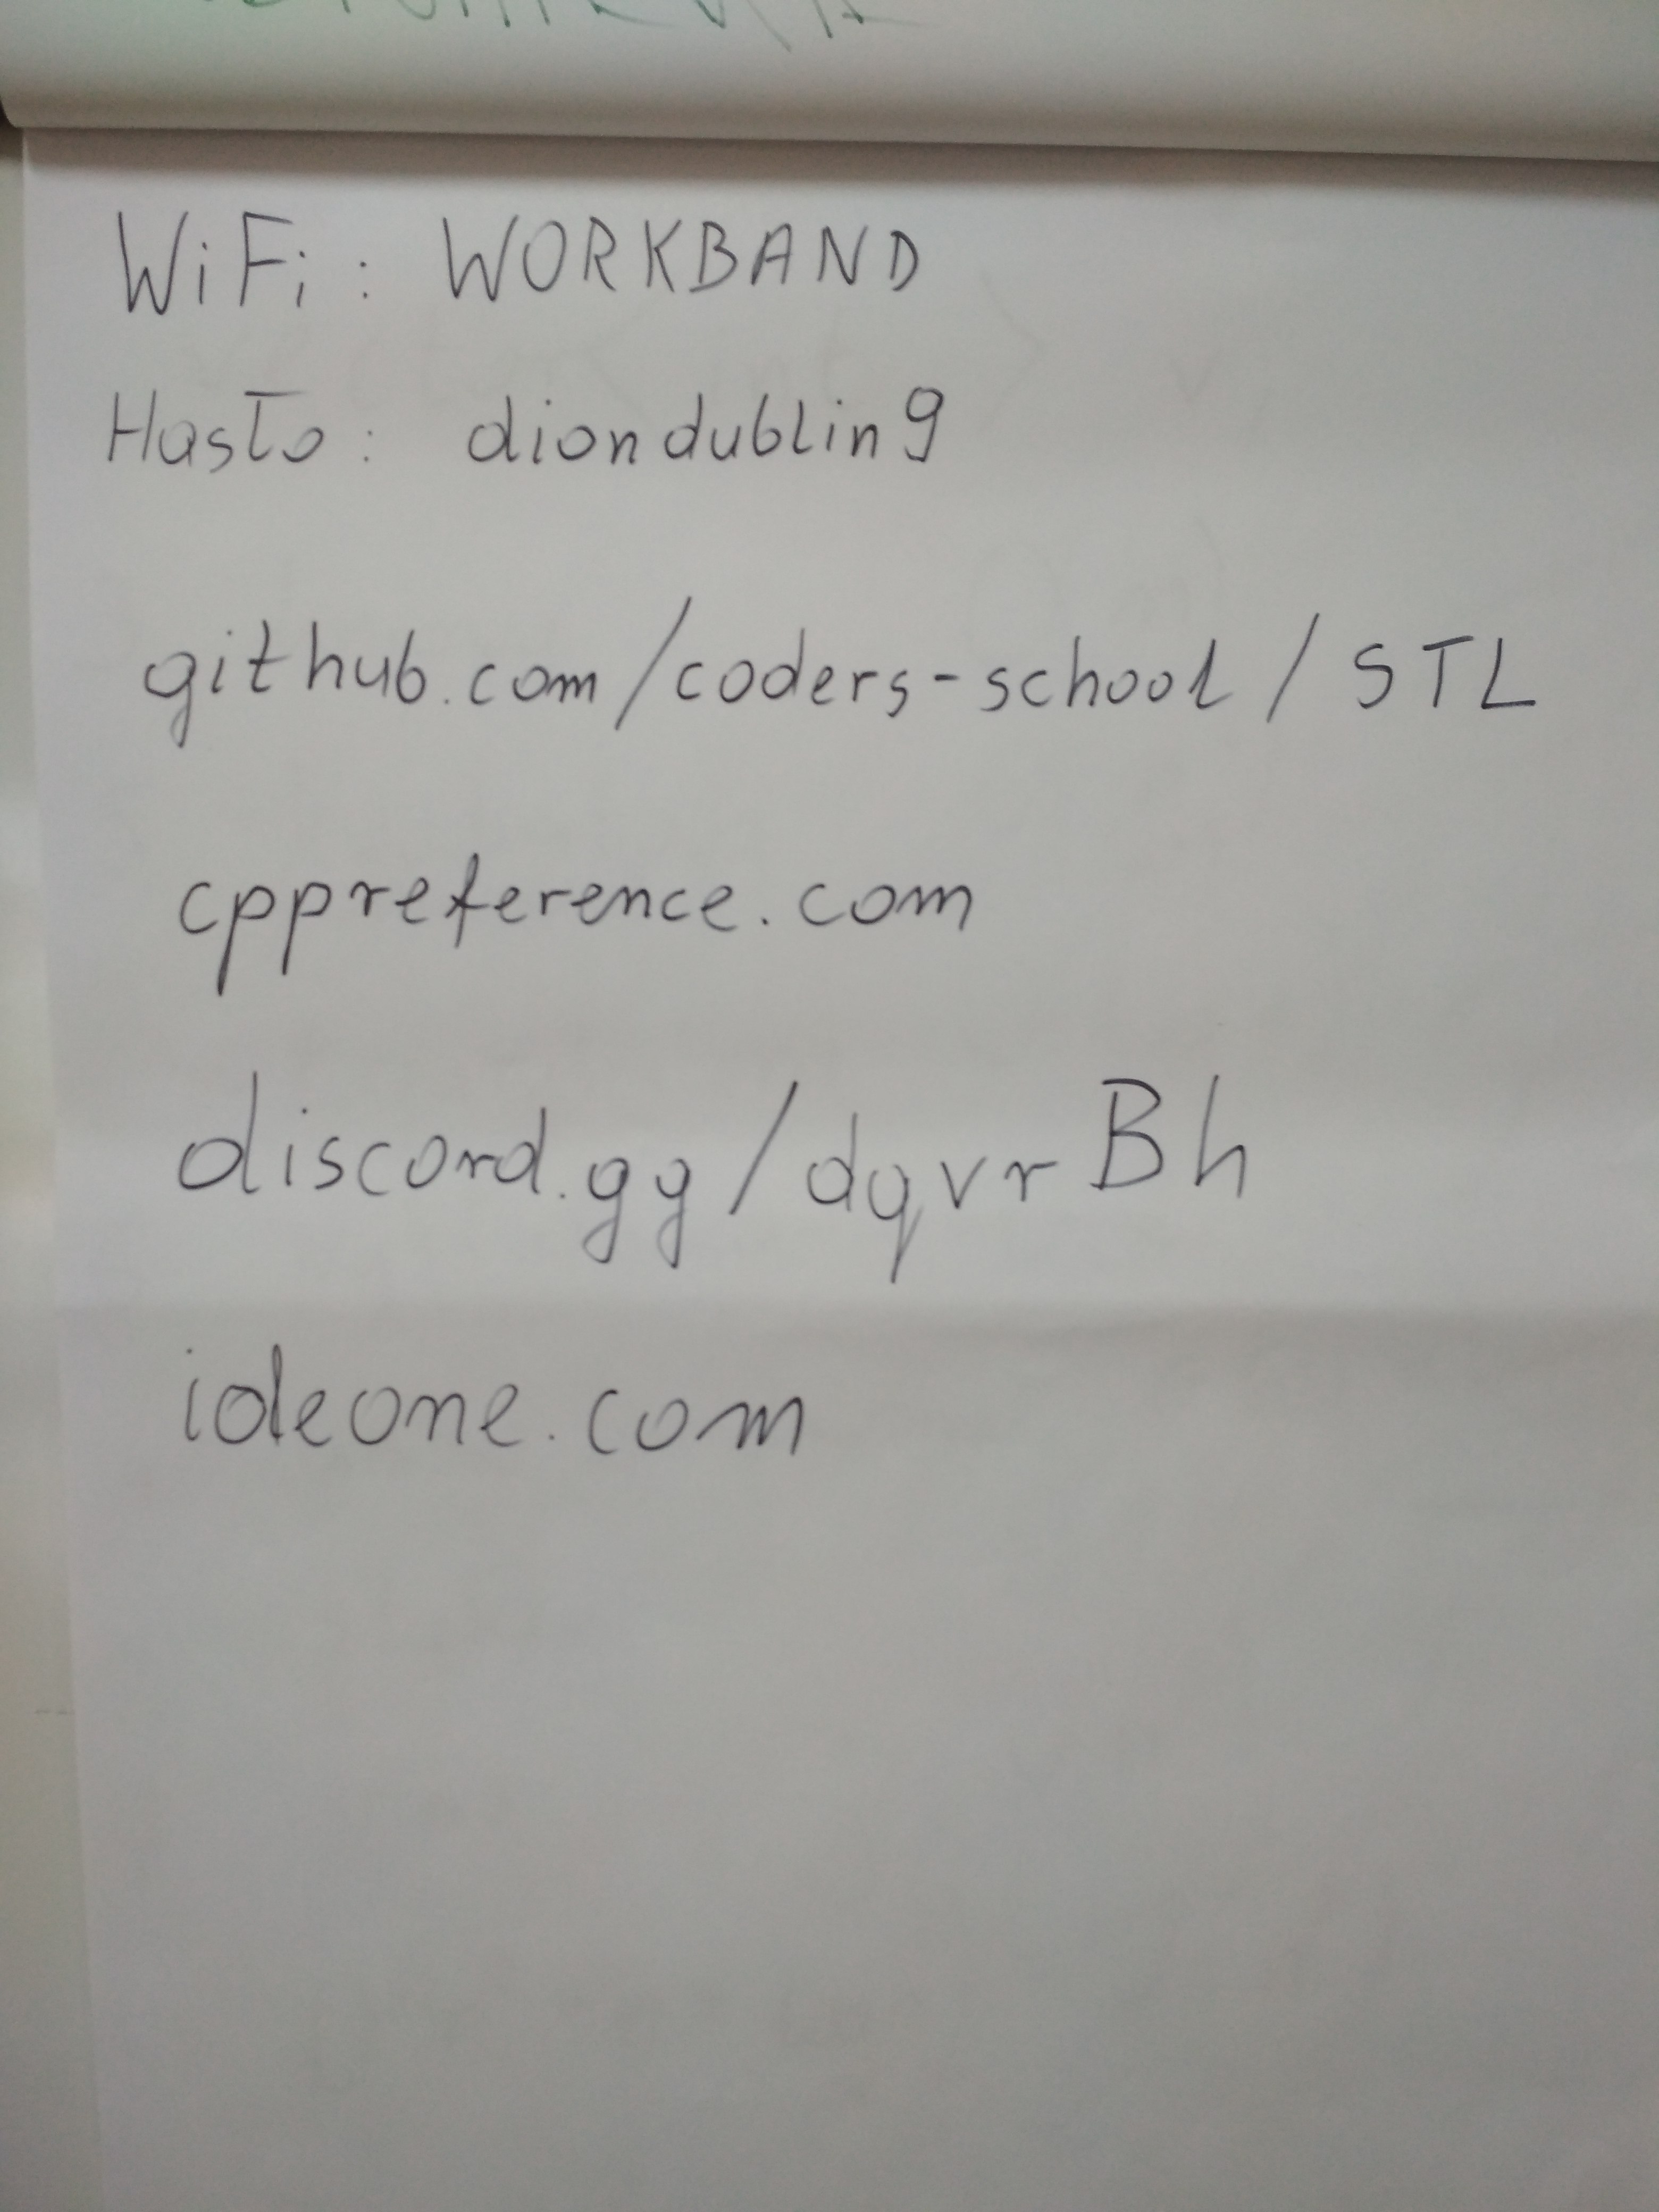 WiFi: WORKBAND
Hasło: diondublin9
github.com/coders-school/STL
cppreference.com
discord.gg/dqvrBh
ideone.com